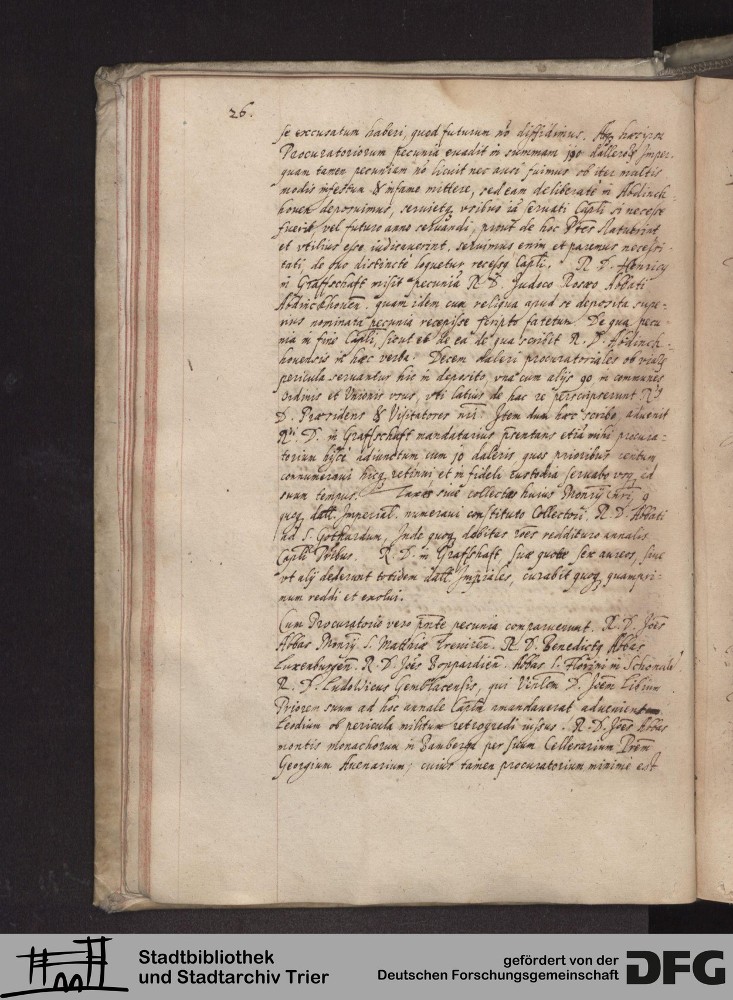 26.
se excusatum haberi, quod futurum nō diffidimus. haec
Procuratoriorum pecunia evadit in summam dallerorū Imper.
quam tamen pecuniam nō licuit nec ausi fuimus ob iter multis
modis infestum & infame mittere, sed eam deliberatè in Abdinck
hoven deposuimus, usibus servati Capli si necesse
fuerit vel futuro anno servandi, prout de hoc Statuerint
et utilius esse iudicaverint, servimus enim et paremus necessi-
tati, de quo distinctè loquetur recessꝯ Capli. R. D. Henricꝯ
in Graffschaft misit pecuniā R. D. Judoco Rosoo Abbati
Abdinckhoven. quam idem cum reliqua apud se deposita supe-
rius nominata pecunia recepisse scripto fatetur. De qua pecu-
nia in fine Capli, sicut et de ea de qua scribit R. D. Abdinck-
hovensis in haec verba: Decem daleri procuratoriales ob viarū
pericula servantur hic in deposito, unà cum alijs 90 in communes
Ordinis et Unionis usus, uti latius de hac re perscripserunt Rdi
D. Praesidens & Visitatores nri. Item dum haec scribo, advenit
Rdi. D. in Graffschaft mandatarius prsentans etiā mihi procura-
torium hisce adiunctum cum 10 daleris quos prioribus centum
connumeravi hicq retinui et in fideli custodia servabo usq ad
suum tempus. Taxae suae collectae huius Monrij nri 9
quoq dall. Imperial. numeravi constituto Collectori, R. D. Abbati
ad S. Gothardum, Inde quoq debitas rōes reddituro annalis
Capli Pribus. R. D. in Graffschaft suae quotae sex aureos, sive
ut alij dederunt totidem dall Impiales, curabit quoq quampri-
mum reddi et exolui.
Cum Procuratorio vero prnte pecunia comparuerunt. R. D. Joēs
Abbas Monrij S. Matthiae Treviren. R. D. Benedictꝯ Abbas
Luxenburgen. R. D. Joēs Boppardien. Abbas S. Florini in Schonau
R. D. Ludovicus Gemblacensis, qui Venlem D. Joem
Priorem suum ad hoc annale Caplm amandaverat advenientem
Leodium ob pericula militum retrogredi iussus. R. D. Joēs Abbas
montis monachorum in Bamberga per suum Cellerarium Prem
Georgium Avenarium, cuius tamen procuratorium minimè est
Stadtbibliothek
und Stadtarchiv Trier
gefördert von der
Deutschen Forschungsgemeinschaft
DFG